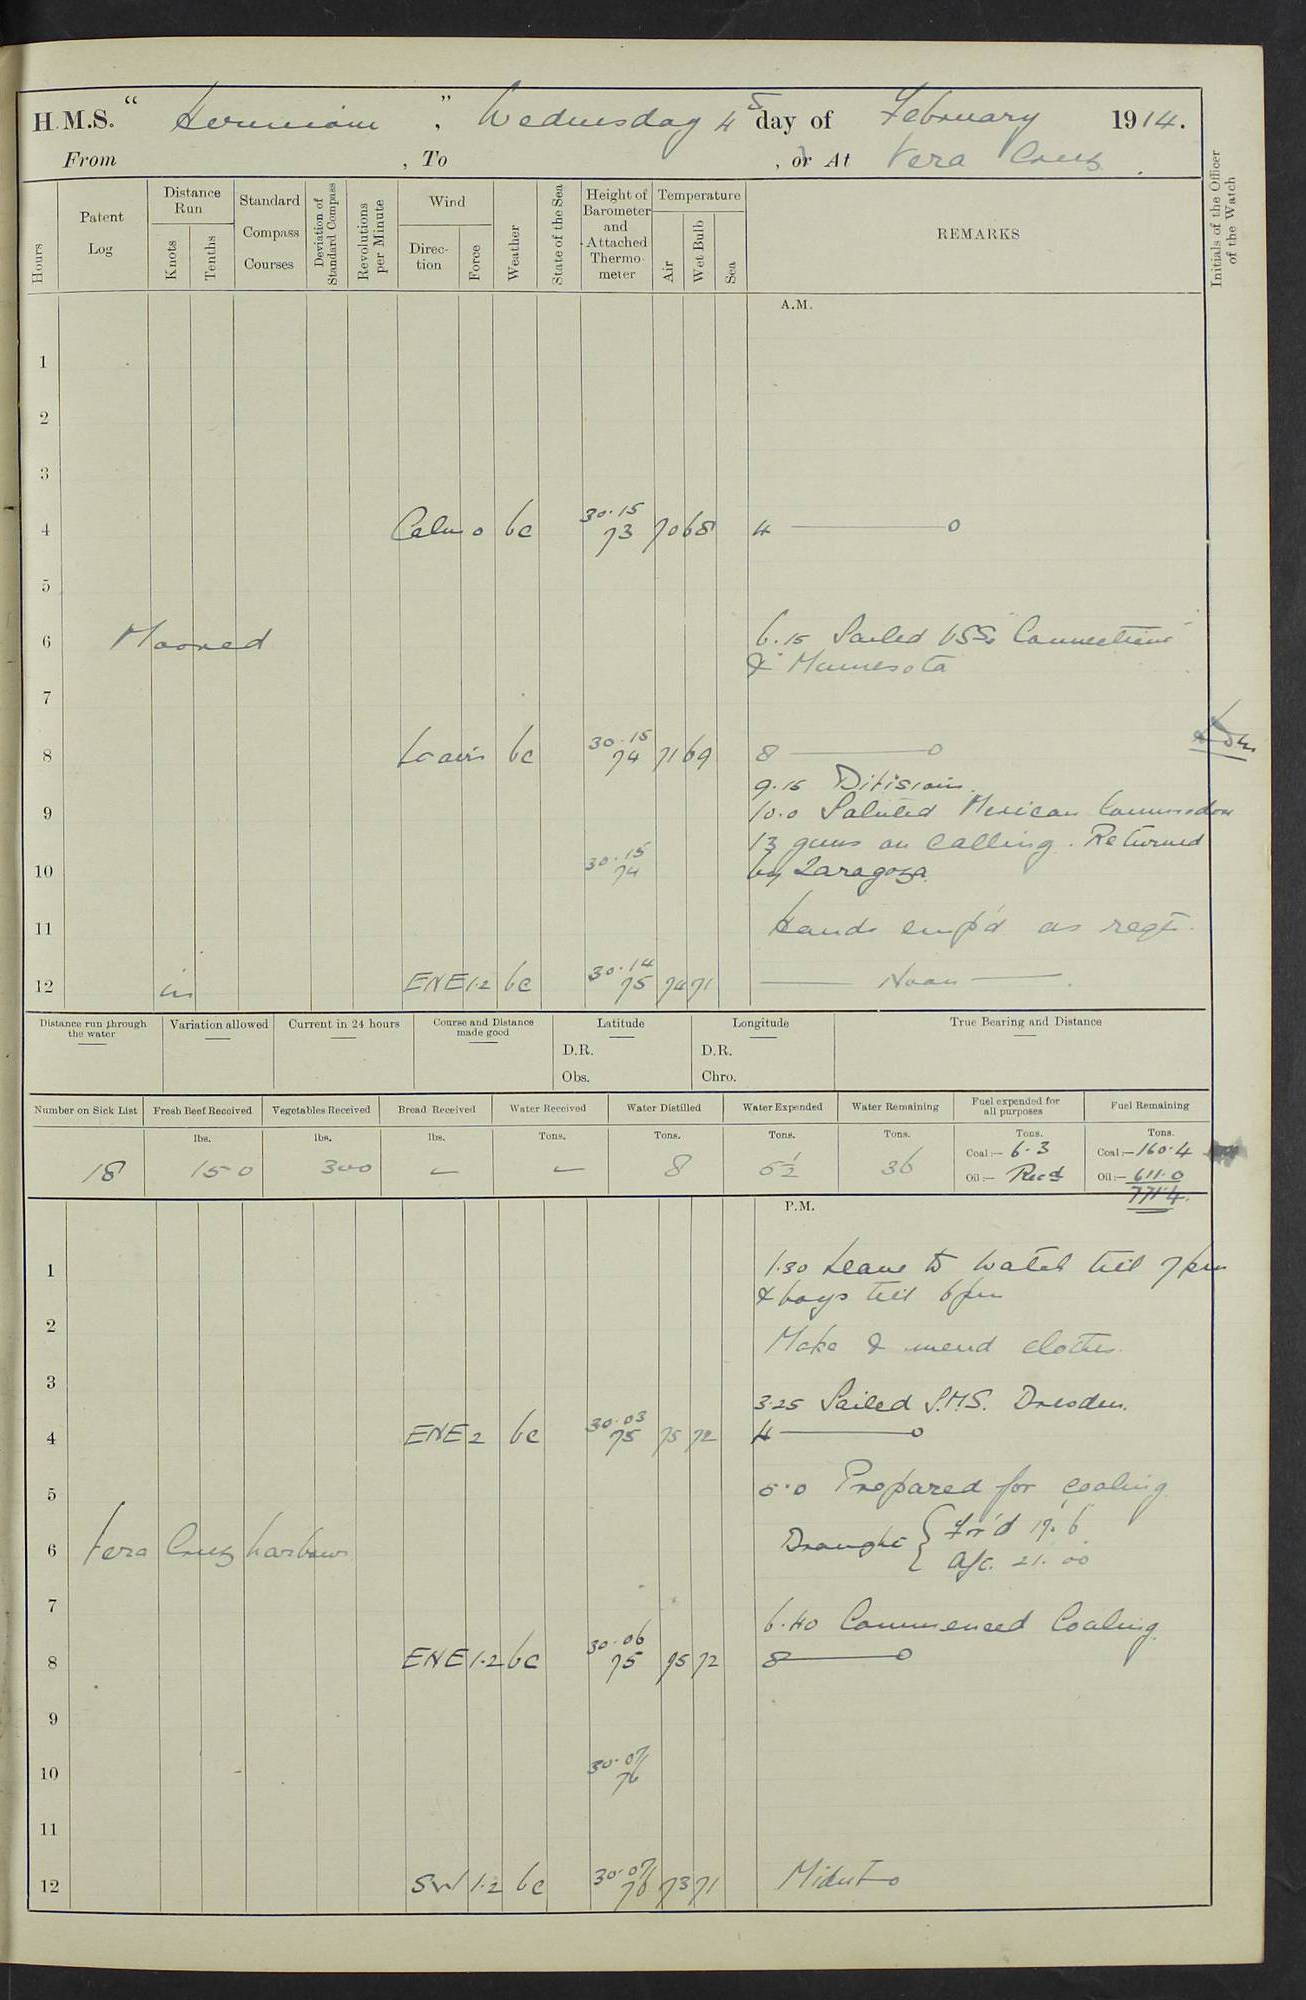 H.M.S. " Hermione ", Wednesday 4th day of February 1914.
From , To , or At Vera Cruz.
Hours
Patent Log
Distance Run
Knots
Tenths
Standard Compass Courses
Deviation of Standard Compass
Revolutions per Minute
Wind
Direction
Force
Weather
State of the Sea
Height of Barometer and Attached Thermometer
Temperature
Air
Wet Bulb
Sea
REMARKS
Initials of the Officer of the Watch
A.M.
1
2
3
4 Calm 0 bc 30.15 73 70 68 4 ——— 0
5
6 Moored 6.15 Sailed USSs "Connecticut"
& "Minnesota
7
8 Lt airs bc 30.15 74 71 69 8 ——— 0
9.15 Divisions.
9 10.0 Saluted Mexican Commodore
13 guns on calling. Returned
10 30.15 74 by Zaragoza.
11 Hands emp'd as reqt.
12 in ENE 1.2 bc 30.14 75 74 71 ——— Noon ———.
Distance run through the water
Variation allowed
Current in 24 hours
Course and Distance made good
Latitude
D.R.
Obs.
Longitude
D.R.
Chro.
True Bearing and Distance
Number on Sick List
Fresh Beef Received
Vegetables Received
Bread Received
Water Received
Water Distilled
Water Expended
Water Remaining
Fuel expended for all purposes
Fuel Remaining
lbs. lbs. lbs. Tons. Tons. Tons. Tons. Tons. Tons.
18 150 300 — — 8 5½ 36 Coal:– 6.3 Coal:– 160.4
Oil:– Rec'd Oil:– 611.0
771.4.
P.M.
1 1.30 Leave to Watch till 7pm
& boys till 6pm
2 Make & mend clothes.
3 3.25 Sailed S.M.S. Dresden.
4 ENE 2 bc 30.03 75 75 72 4 ——— 0
5 5.0 Prepared for coaling
6 Vera Cruz harbour Draught { For'd 19.6
Aft. 21.00
7 6.40 Commenced Coaling.
8 ENE 1.2 bc 30.06 75 75 72 8 ——— 0
9
10 30.07 76
11
12 SW 1.2 bc 30.07 76 73 71 Midnt — 0